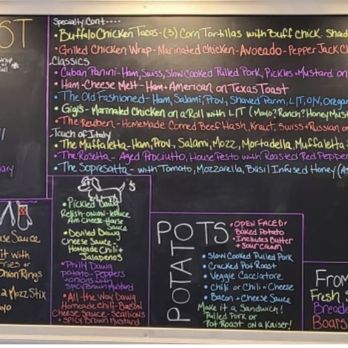 ST
Specialty Cont....
• Buffalo Chicken Tacos - (3) Corn Tortillas with Buff Chick, Shad
• Grilled Chicken Wrap - Marinated Chicken - Avocado - Pepper Jack Ch
Classics
• Cuban Panini - Ham, Swiss, Slow Cooked Pulled Pork, Pickles - Mustard on
• Ham - Cheese Melt - Ham - American on Texas Toast
• The Old Fashioned - Ham, Salami, Prov, Shaved Parm, L,T,O, ON, Oregan
• Gigi's - Marinated Chicken on a Roll with L/T (Mayo? Ranch? Honey Must
• The Reuben - Homemade Corned Beef Hash, Kraut, Swiss + Russian on
Touch of Italy
• The Muffaletta - Ham, Prov, Salami, Mozz, Mortadella, Muffaletta
• The Rosetta - Aged Prociutto, House Pesto with Roasted Red Pepper
• The Sopresatta - with Tomato, Mozzarella, Basil Infused Honey
• Pickled Dawg
Relish - onion - lettuce
Am Cheese House
Sauce
• Deviled Dawg
Cheese Sauce -
Homemade Chili -
Jalapenos
• Philly Dawg
potato - Peppers
onions with
Spicy Brown Mustard
• All-the Way Dawg
Homemade Chili - Bacon
Cheese Sauce - Scallions
+ Spicy Brown Mustard
use Sauce
it with
Onion Rings
2 Mozz Stix
ayo
POTS
POTATO
• OPEN FACED
Baked Potato
• Includes Butter
+ Sour Cream
• Slow Cooked Pulled Pork
• Cracked Pot Roast
• Veggie Cacciatore
• Chili or Chili - Cheese
• Bacon - Cheese Sauce
Make it a Sandwich!
Pulled Pork or
Pot-Roast on a Kaiser!
From
Fresh S
Breade
Boats